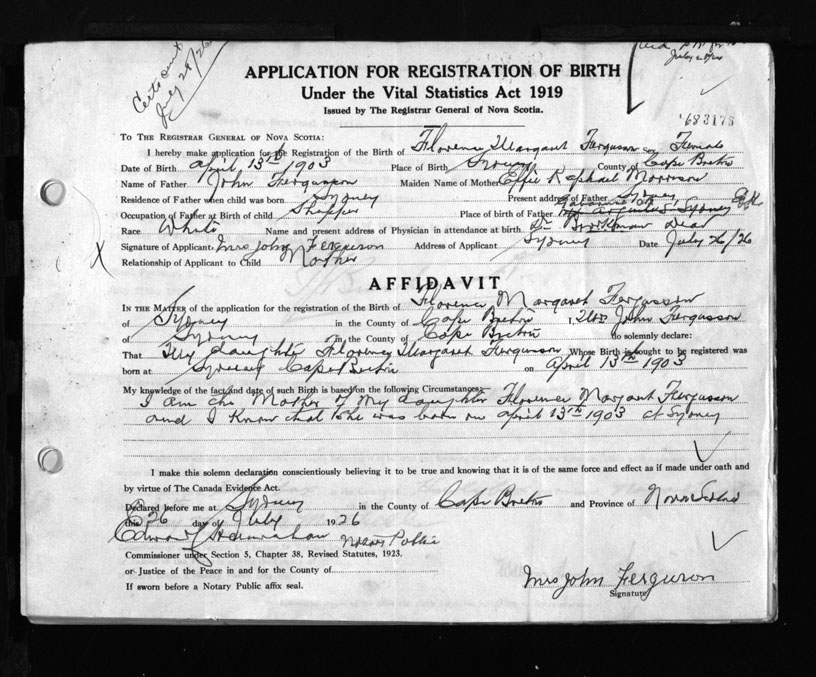 Cert sent
July 28/26
July 28/26
APPLICATION FOR REGISTRATION OF BIRTH
Under the Vital Statistics Act 1919
Issued by The Registrar General of Nova Scotia.
683173
TO THE REGISTRAR GENERAL OF NOVA SCOTIA:
I hereby make application for the Registration of the Birth of Florence Margaret Fergusson Sex Female
Date of Birth April 13th 1903 Place of Birth Sydney County of Cape Breton
Name of Father John Fergusson Maiden Name of Mother Effie Raphael Morrison
Residence of Father when child was born Sydney Present address of Father Sydney
Occupation of Father at Birth of child Place of birth of Father Sydney
Race White Name and present address of Physician in attendance at birth Dr. Dead
Signature of Applicant Mrs John Ferguson Address of Applicant Sydney Date July 26/26
Relationship of Applicant to Child Mother
AFFIDAVIT
IN THE MATTER of the application for the registration of the Birth of Florence Margaret Fergusson
of Sydney in the County of Cape Breton I, Mrs John Fergusson
of Sydney in the County of Cape Breton do solemnly declare:
That My daughter Florence Margaret Fergusson Whose Birth is sought to be registered was
born at Sydney Cape Breton on April 13th 1903
My knowledge of the fact and date of such Birth is based on the following Circumstances:
I am the Mother of My daughter Florence Margaret Fergusson
and I Know that she was born on April 13th 1903 at Sydney
I make this solemn declaration conscientiously believing it to be true and knowing that it is of the same force and effect as if made under oath and
by virtue of The Canada Evidence Act.
Declared before me at Sydney in the County of Cape Breton and Province of Nova Scotia
this 26 day of July 1926
Edward Notary Public
Commissioner under Section 5, Chapter 38, Revised Statutes, 1923.
or Justice of the Peace in and for the County of
If sworn before a Notary Public affix seal.
Mrs John Ferguson
Signature